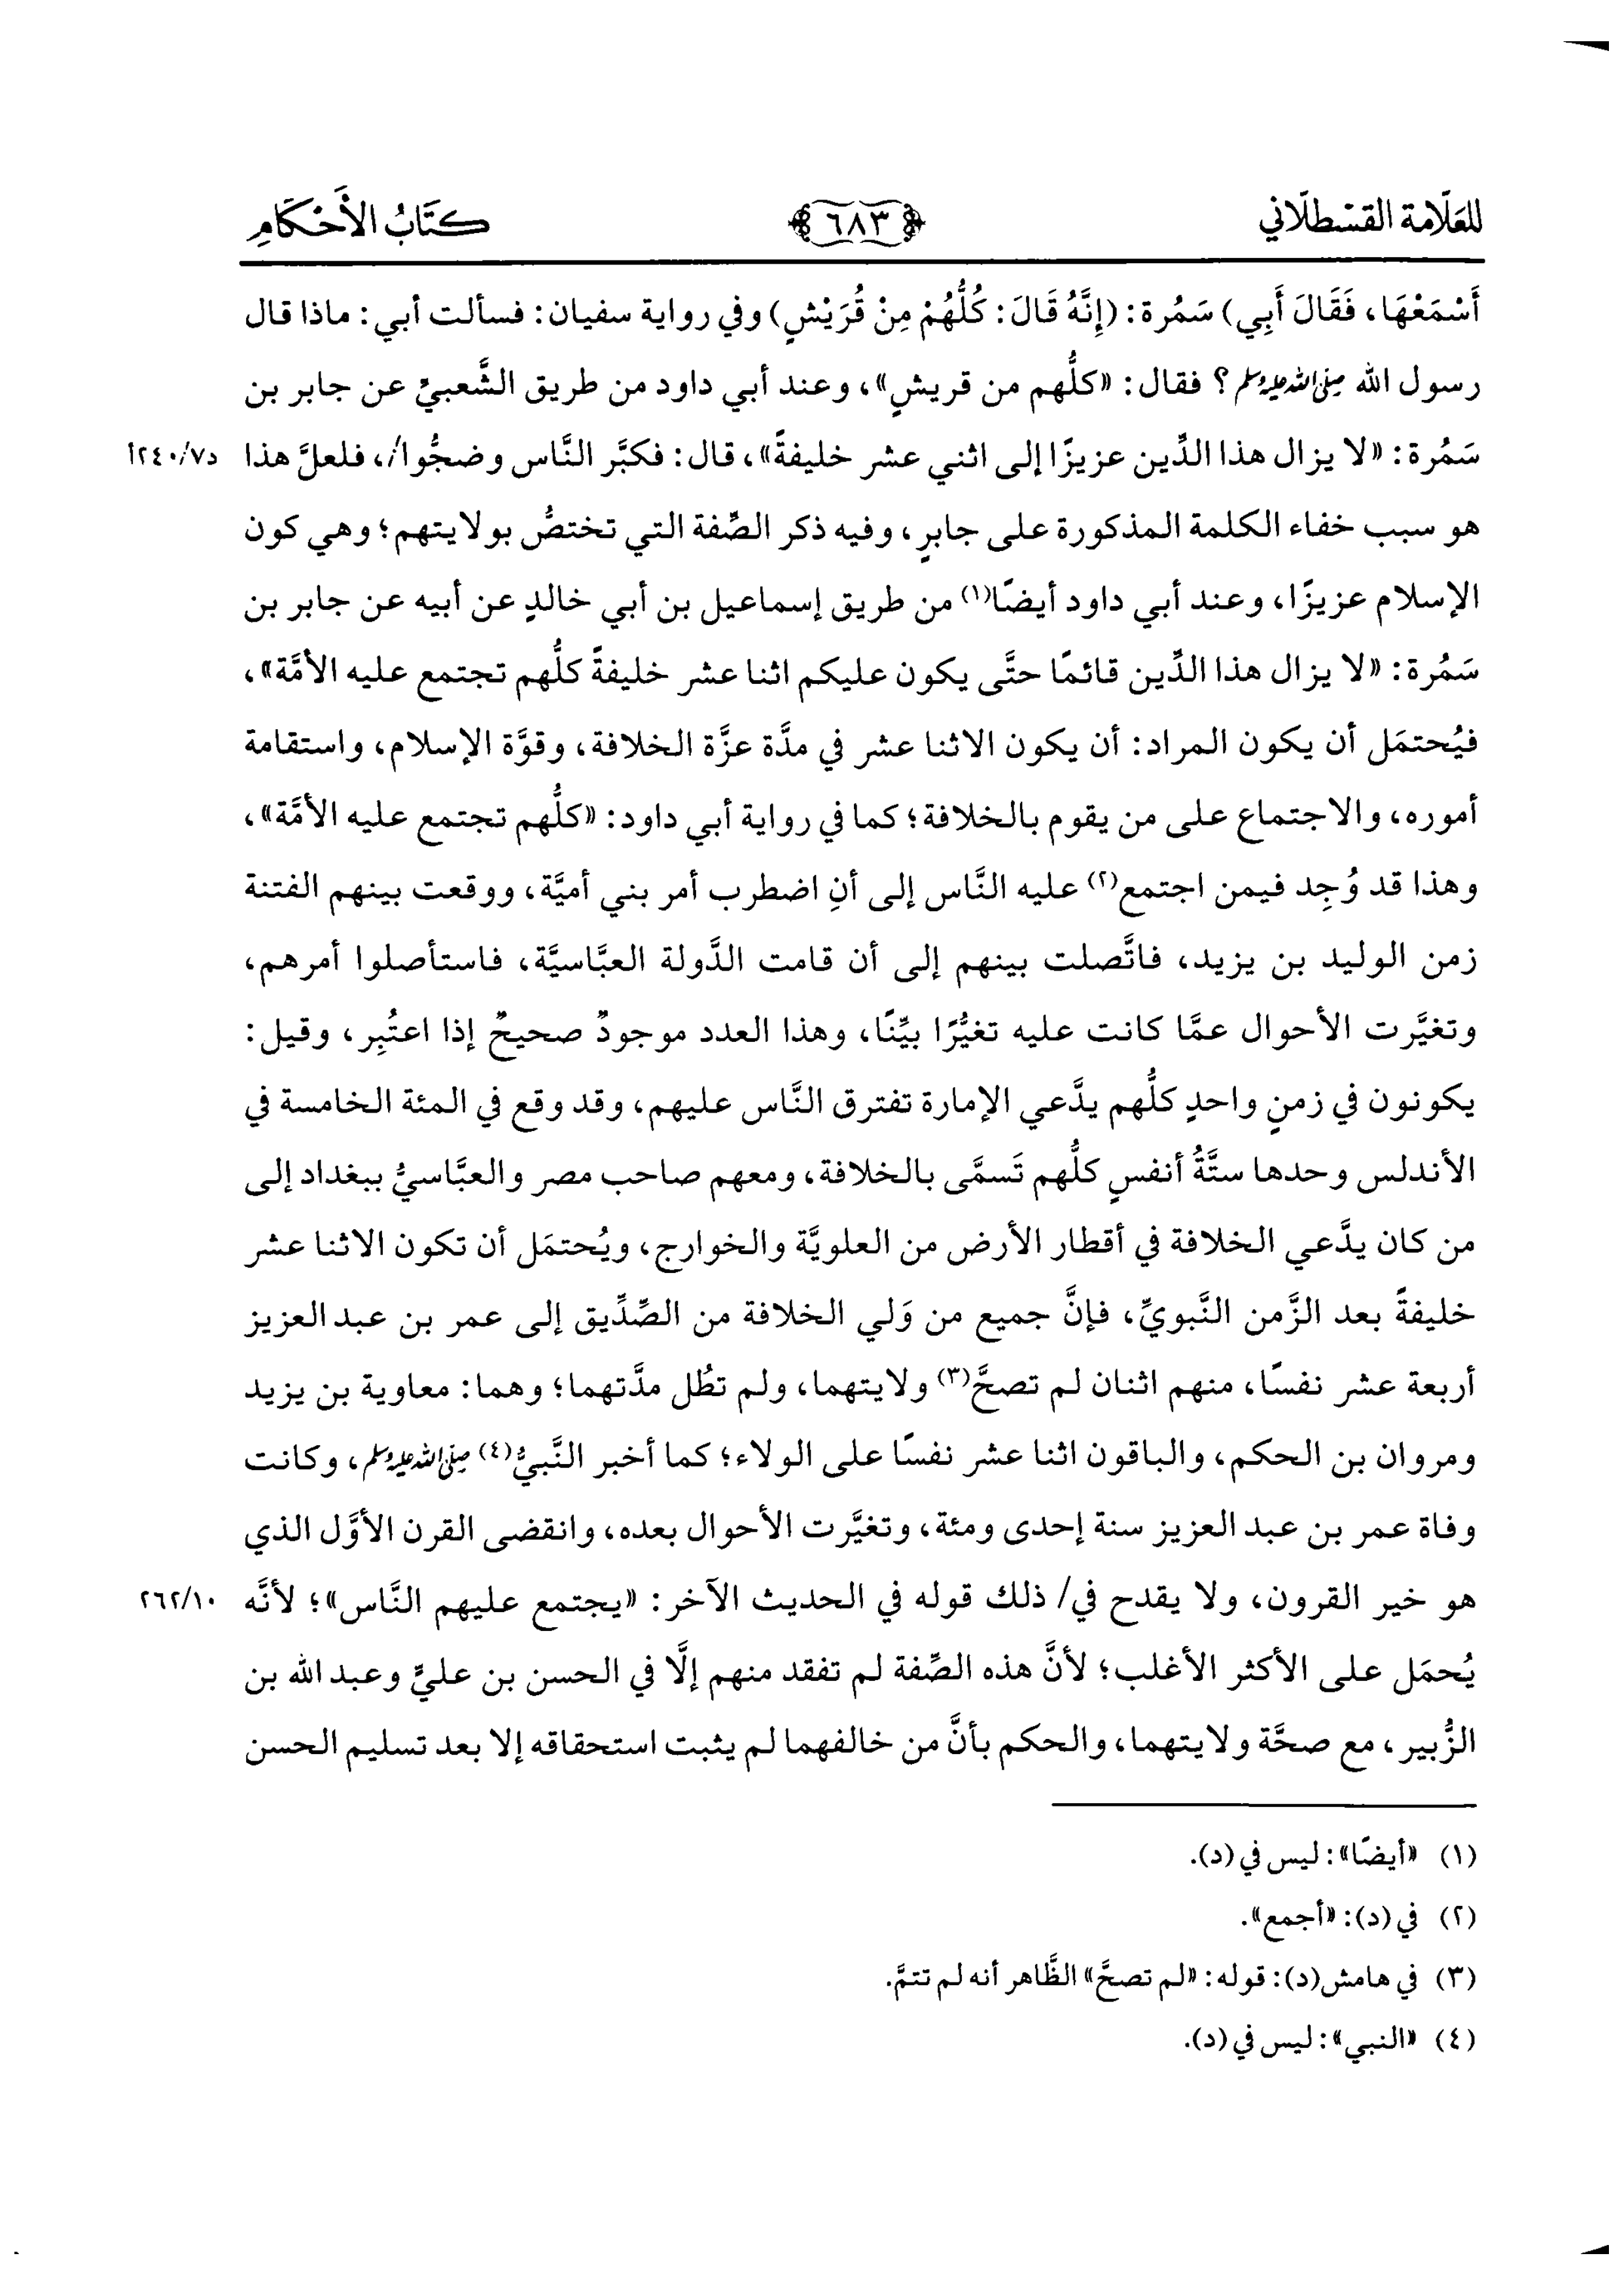 للعَلّامة القسْطلّاني ٦٨٣ كتَابُ الأَحْكَام
أَسْمَعْهَا، فَقَالَ أَبِي) سَمُرة: (إِنَّهُ قَالَ: كُلُّهُمْ مِنْ قُرَيْشٍ) وفي رواية سفيان: فسألت أبي: ماذا قال
رسول الله صلى الله عليه وسلم؟ فقال: «كلُّهم من قريشٍ»، وعند أبي داود من طريق الشَّعبيِّ عن جابر بن
سَمُرة: «لا يزال هذا الدِّين عزيزًا إلى اثني عشر خليفةً»، قال: فكبَّر النَّاس وضجُّوا/، فلعلَّ هذا د٧/٢٤٠أ
هو سبب خفاء الكلمة المذكورة على جابرٍ، وفيه ذكر الصِّفة التي تختصُّ بولايتهم؛ وهي كون
الإسلام عزيزًا، وعند أبي داود أيضًا(١) من طريق إسماعيل بن أبي خالدٍ عن أبيه عن جابر بن
سَمُرة: «لا يزال هذا الدِّين قائمًا حتَّى يكون عليكم اثنا عشر خليفةً كلُّهم تجتمع عليه الأمَّة»،
فيُحتمَل أن يكون المراد: أن يكون الاثنا عشر في مدَّة عزَّة الخلافة، وقوَّة الإسلام، واستقامة
أموره، والاجتماع على من يقوم بالخلافة؛ كما في رواية أبي داود: «كلُّهم تجتمع عليه الأمَّة»،
وهذا قد وُجِد فيمن اجتمع(٢) عليه النَّاس إلى أنِ اضطرب أمر بني أميَّة، ووقعت بينهم الفتنة
زمن الوليد بن يزيد، فاتَّصلت بينهم إلى أن قامت الدَّولة العبَّاسيَّة، فاستأصلوا أمرهم،
وتغيَّرت الأحوال عمَّا كانت عليه تغيُّرًا بيِّنًا، وهذا العدد موجودٌ صحيحٌ إذا اعتُبِر، وقيل:
يكونون في زمنٍ واحدٍ كلُّهم يدَّعي الإمارة تفترق النَّاس عليهم، وقد وقع في المئة الخامسة في
الأندلس وحدها ستَّةُ أنفسٍ كلُّهم تَسمَّى بالخلافة، ومعهم صاحب مصر والعبَّاسيُّ ببغداد إلى
من كان يدَّعي الخلافة في أقطار الأرض من العلويَّة والخوارج، ويُحتمَل أن تكون الاثنا عشر
خليفةً بعد الزَّمن النَّبويِّ، فإنَّ جميع من وَلي الخلافة من الصِّدِّيق إلى عمر بن عبد العزيز
أربعة عشر نفسًا، منهم اثنان لم تصحَّ(٣) ولايتهما، ولم تطُل مدَّتهما؛ وهما: معاوية بن يزيد
ومروان بن الحكم، والباقون اثنا عشر نفسًا على الولاء؛ كما أخبر النَّبيُّ(٤) صلى الله عليه وسلم، وكانت
وفاة عمر بن عبد العزيز سنة إحدى ومئة، وتغيَّرت الأحوال بعده، وانقضى القرن الأوَّل الذي
هو خير القرون، ولا يقدح في/ ذلك قوله في الحديث الآخر: «يجتمع عليهم النَّاس»؛ لأنَّه ٢٦٢/١٠
يُحمَل على الأكثر الأغلب؛ لأنَّ هذه الصِّفة لم تفقد منهم إلَّا في الحسن بن عليٍّ وعبد الله بن
الزُّبير، مع صحَّة ولايتهما، والحكم بأنَّ من خالفهما لم يثبت استحقاقه إلا بعد تسليم الحسن
(١) «أيضًا»: ليس في (د).
(٢) في (د): «أجمع».
(٣) في هامش (د): قوله: «لم تصحَّ» الظَّاهر أنه لم تتمَّ.
(٤) «النبي»: ليس في (د).